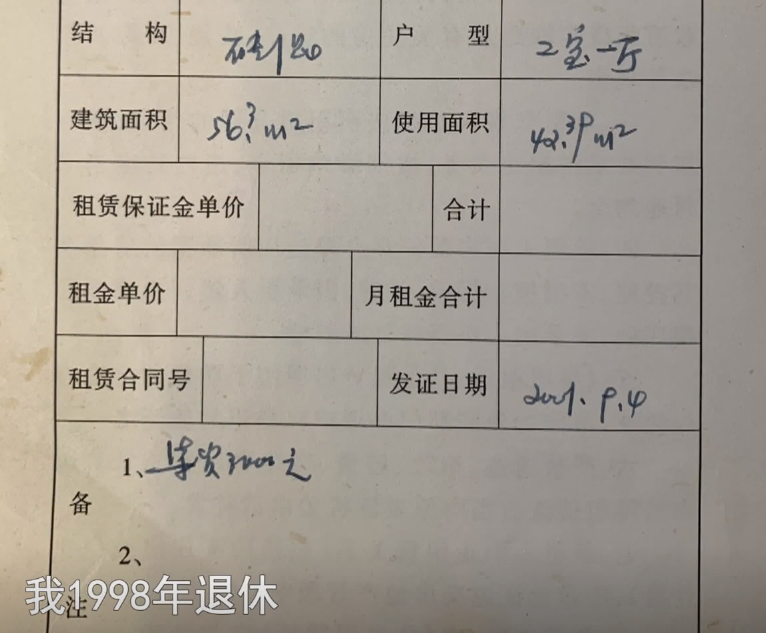 结构 砖混 户型 2室一厅
建筑面积 56.3m² 使用面积 42.39m²
租赁保证金单价 合计
租金单价 月租金合计
租赁合同号 发证日期 2001.9.4
备注
1、集资3000元
2、
我1998年退休